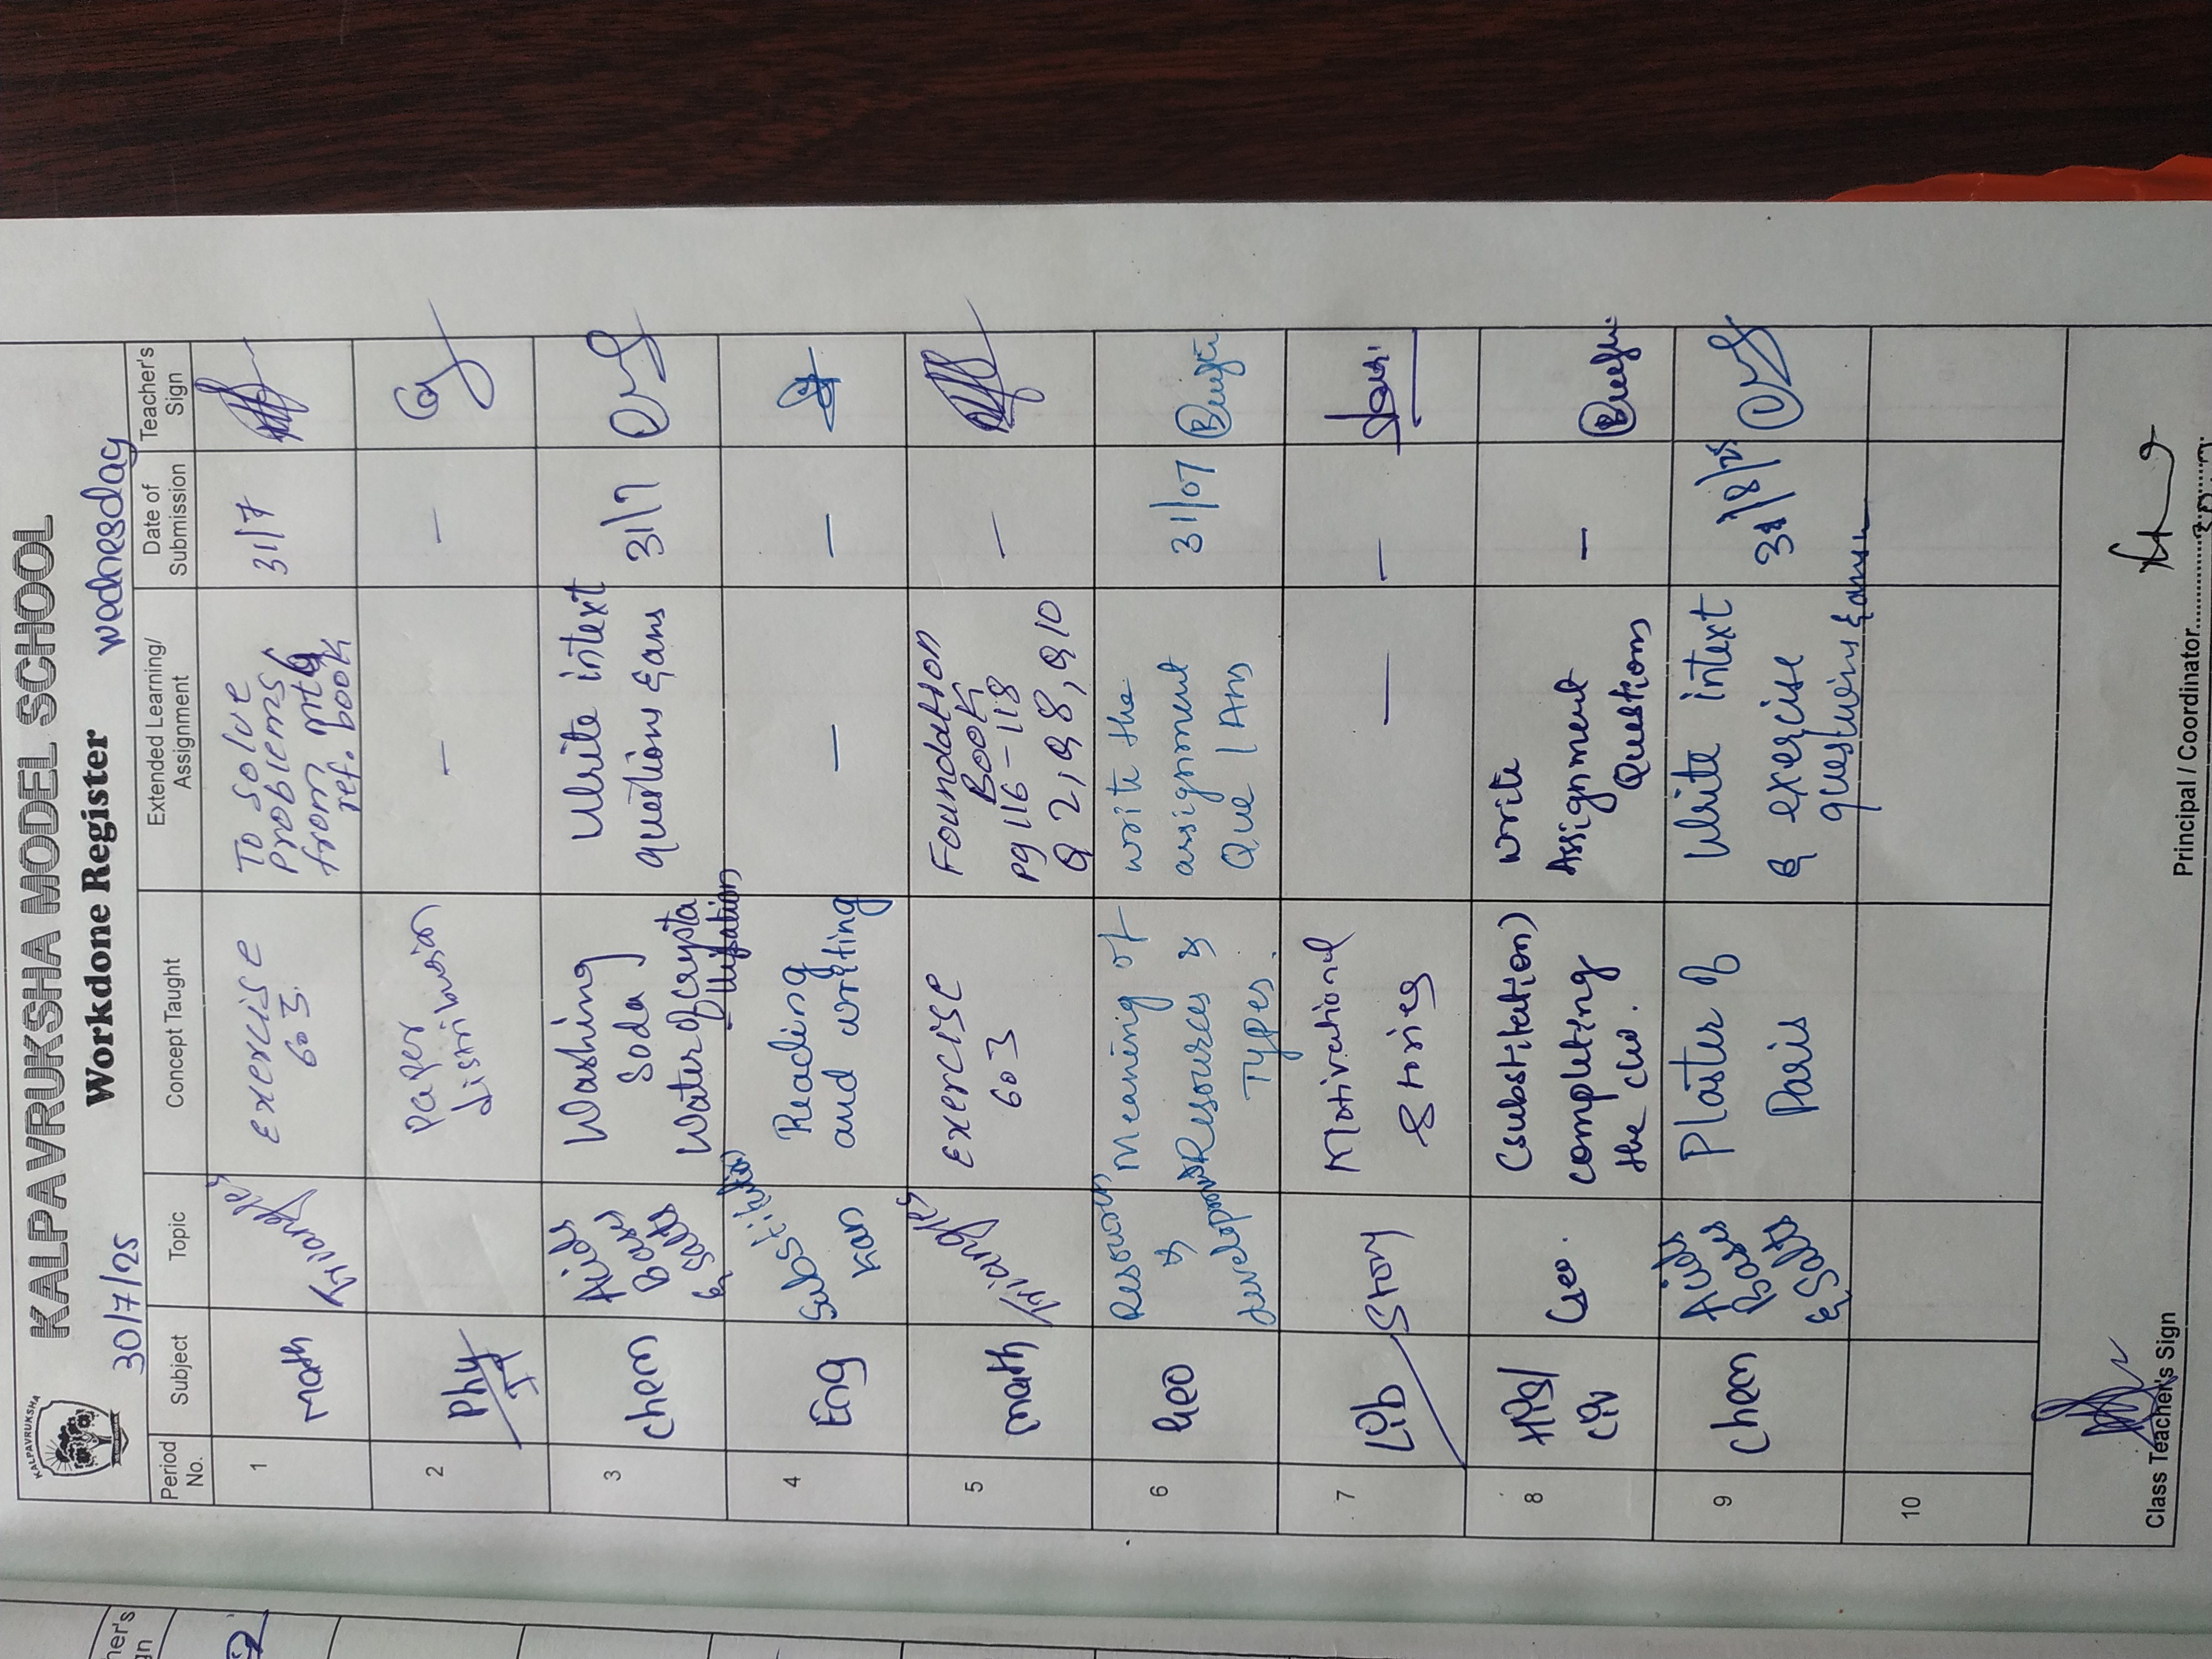 KALPAVRUKSHA
KALPAVRUKSHA MODEL SCHOOL
Workdone Register
30/7/25
Wednesday
Period No.
Subject
Topic
Concept Taught
Extended Learning/ Assignment
Date of Submission
Teacher's Sign
1
Math
Triangles
Exercise
6.3
To solve
Problems
from
ref. book
31/7
2
Phy
Paper
distribution
-
-
3
Chem
Acids
Bases
& Salts
Washing
Soda
Water of crysta
llisation
Write intext
questions & ans
31/7
4
Eng
Substitution
Kan
Reading
and writing
-
-
5
Math
Triangles
Exercise
6.3
Foundation
Book
Pg 116-118
Q 2, Q 8, Q 10
-
6
Geo
Resources
&
development
Meaning of
Resources &
Types.
write the
assignment
Que / Ans
31/07
7
Lib
Story
Motivational
Stories
-
-
8
His/
Civ
Geo.
(substitution)
completing
the cw.
write
Assignment
Questions
-
9
Chem
Acids
Bases
& Salts
Plaster of
Paris
Write intext
& exercise
questions & answ
10
Class Teacher's Sign
Principal / Coordinator